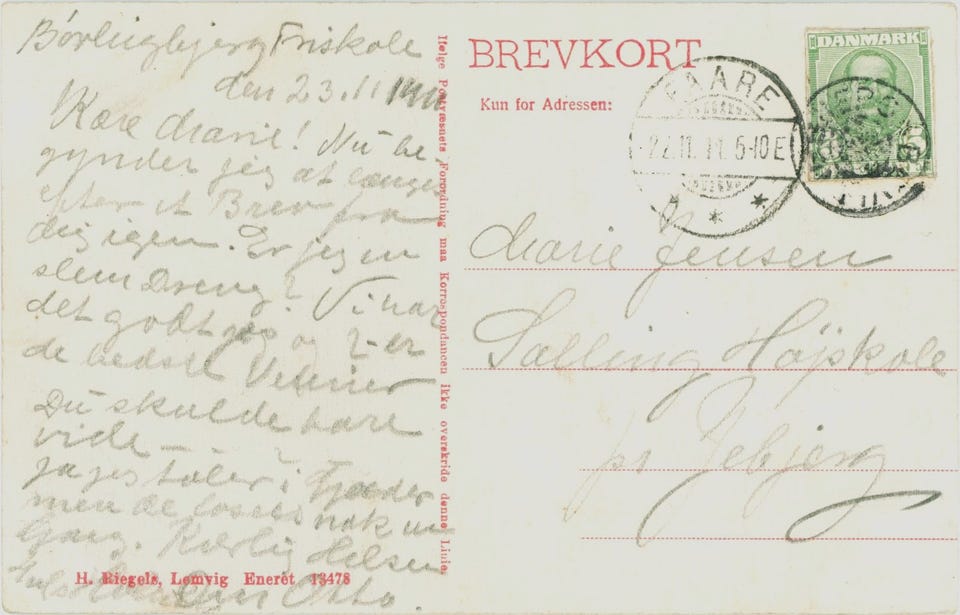 Børlingbjerg Friskole
den 23.11 1911
Kære Marie! Nu be
gynder jeg at længes
efter et Brev fra
dig igen. Er jeg en
slem Dreng? Vi har
det godt og er
de bedste Venner
Du skulde bare
vide —
Ja jeg taler i Gaader
men de løses nok en
Gang. Kærlig Hilsen
Otto.
H. Riegels, Lemvig Eneret 13478
Ifølge Postvæsnets Forordning maa Korrespondancen ikke overskride denne Linie.
BREVKORT
Kun for Adressen:
FAARE
22.11.11. 5-10 E
DANMARK
Marie Jensen
Salling Højskole
pr Jebjerg